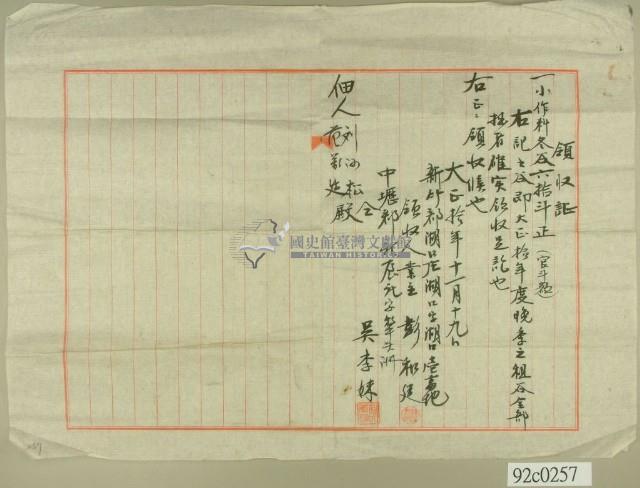 領收証
一小作料冬谷六拾斗正(官斗盈)
右記之谷即大正拾年度晚季之租谷全部
指有確實領收足訖也
右正ニ領收候也
大正拾年十一月十九日
新竹郡湖口庄湖口字湖口壱番地
領收人業主 彭 廷
中壢郡 庄 字
仝 吳李妹
佃人 刘 松
范 殿
國史館臺灣文獻館
TAIWAN HISTORICA
92c0257